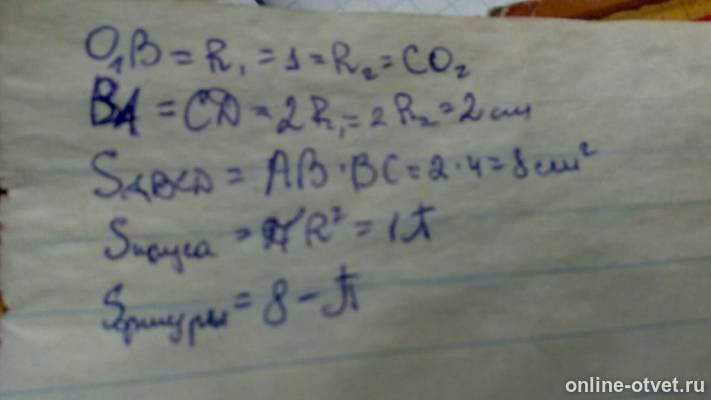 O₁B = R₁ = 1 = R₂ = CO₂
BA = CD = 2R₁ = 2R₂ = 2 см
S ABCD = AB · BC = 2 · 4 = 8 см²
S = πR² = 1π
Sфигуры = 8 - π
online-otvet.ru